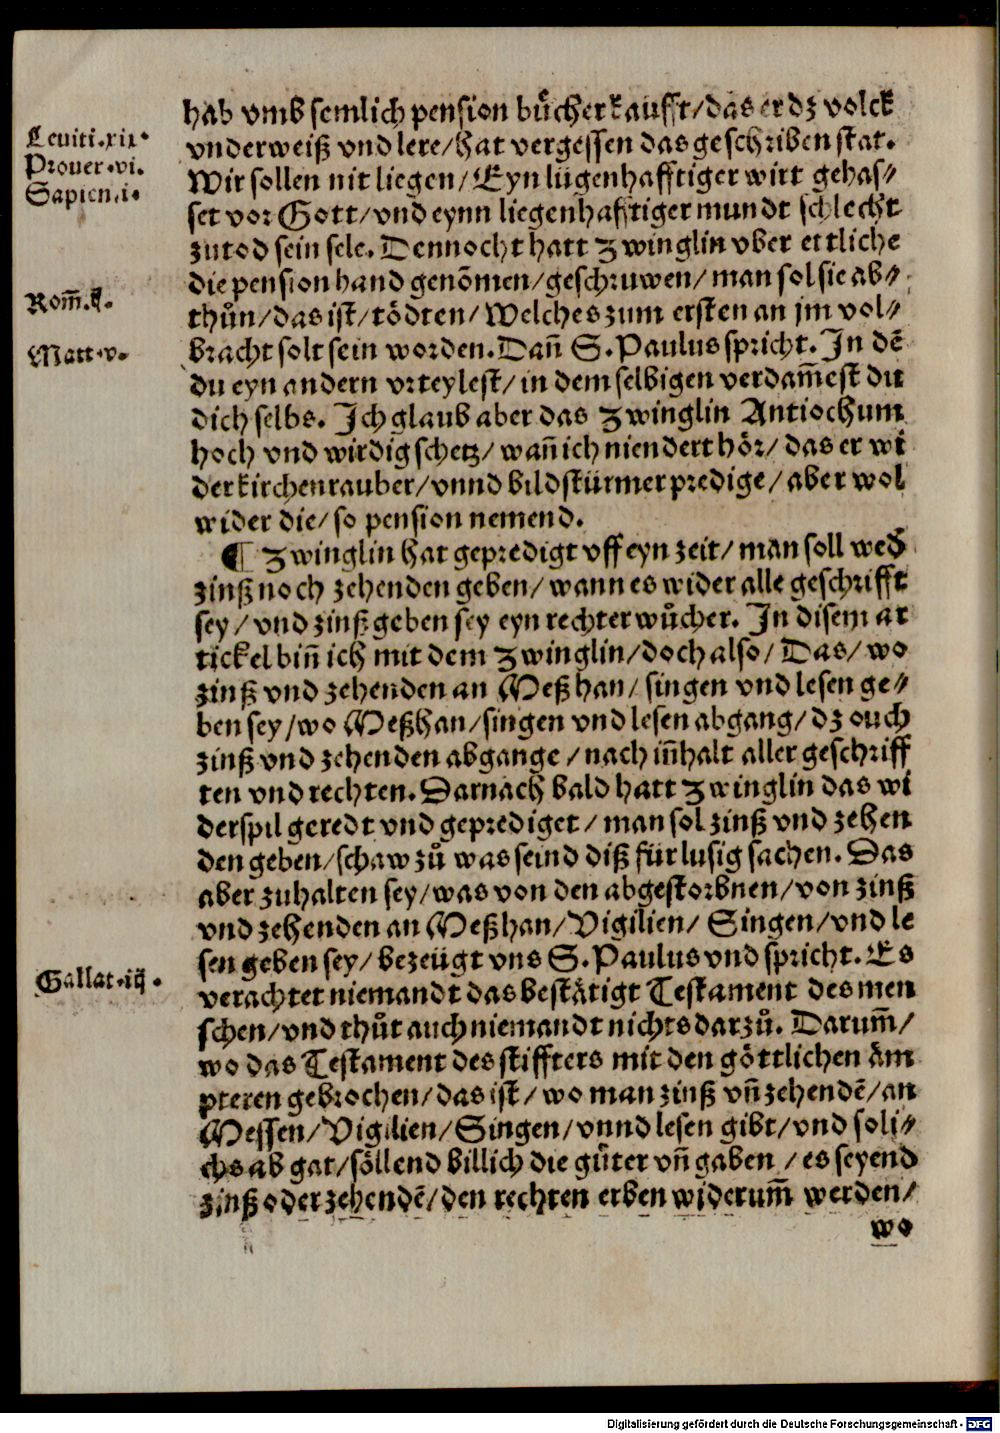 hab vmb semlich pension bücher kaufft/das er dz volck
Leuiti.xix.
vnderweiß vnd lere/hat vergessen das geschriben stat.
Prouer.vi.
Wir sollen nit liegen/Eyn lügenhafftiger wirt gehas⸗
Sapien.i.
set vor Gott/vnd eynn liegenhafftiger mundt schlecht
zutod sein sele. Dennocht hatt Zwinglin vber ettliche
die pension hand genōmen/geschruwen/man sol sie ab⸗
Rom̄.ij.
thůn/das ist/tödten/Welches zum ersten an jm vol⸗
Matt.v.
bracht solt sein worden. Dañ S. Paulus spricht. In dē
du eyn andern vrteylest/in dem selbigen verdam̄est du
dich selbs. Ich glaub aber das Zwinglin Antiochum
hoch vnd wirdig schetz/wañ ich niendert hör/das er wi
der kirchenrauber/vnnd bildstürmer predige/aber wol
wider die/so pension nemend.
¶ Zwinglin hat gepredigt vff eyn zeit/man soll wed̄
zinß noch zehenden geben/wann es wider alle geschrifft
sey/vnd zinß geben sey eyn rechter wůcher. In disem ar
tickel biñ ich mit dem Zwinglin/doch also/Das/wo
zinß vnd zehenden an Meß han/singen vnd lesen ge⸗
ben sey/wo Meßhan/singen vnd lesen abgang/dz ouch
zinß vnd zehenden abgange/nach iñhalt aller geschriff
ten vnd rechten. Darnach bald hatt Zwinglin das wi
derspil geredt vnd geprediget/man sol zinß vnd zehen
den geben/schaw zů was seind diß für lusig sachen. Das
aber zuhalten sey/was von den abgestorbnen/von zinß
vnd zehenden an Meßhan/Vigilien/Singen/vnd le
sen geben sey/bezeügt vns S. Paulus vnd spricht. Es
Gallat.iij.
verachtet niemandt das bestätigt Testament des men
schen/vnd thůt auch niemandt nichts darzů. Darum̄/
wo das Testament des stiffters mit den göttlichen äm
pteren gebrochen/das ist/wo man zinß vñ zehendē/an
Messen/Vigilien/Singen/vnnd lesen gibt/vnd soli⸗
chs ab gat/söllend billich die gůter vñ gaben/es seyend
zinß oder zehendē/den rechten erben widerum̄ werden/
wo
Digitalisierung gefördert durch die Deutsche Forschungsgemeinschaft - DFG